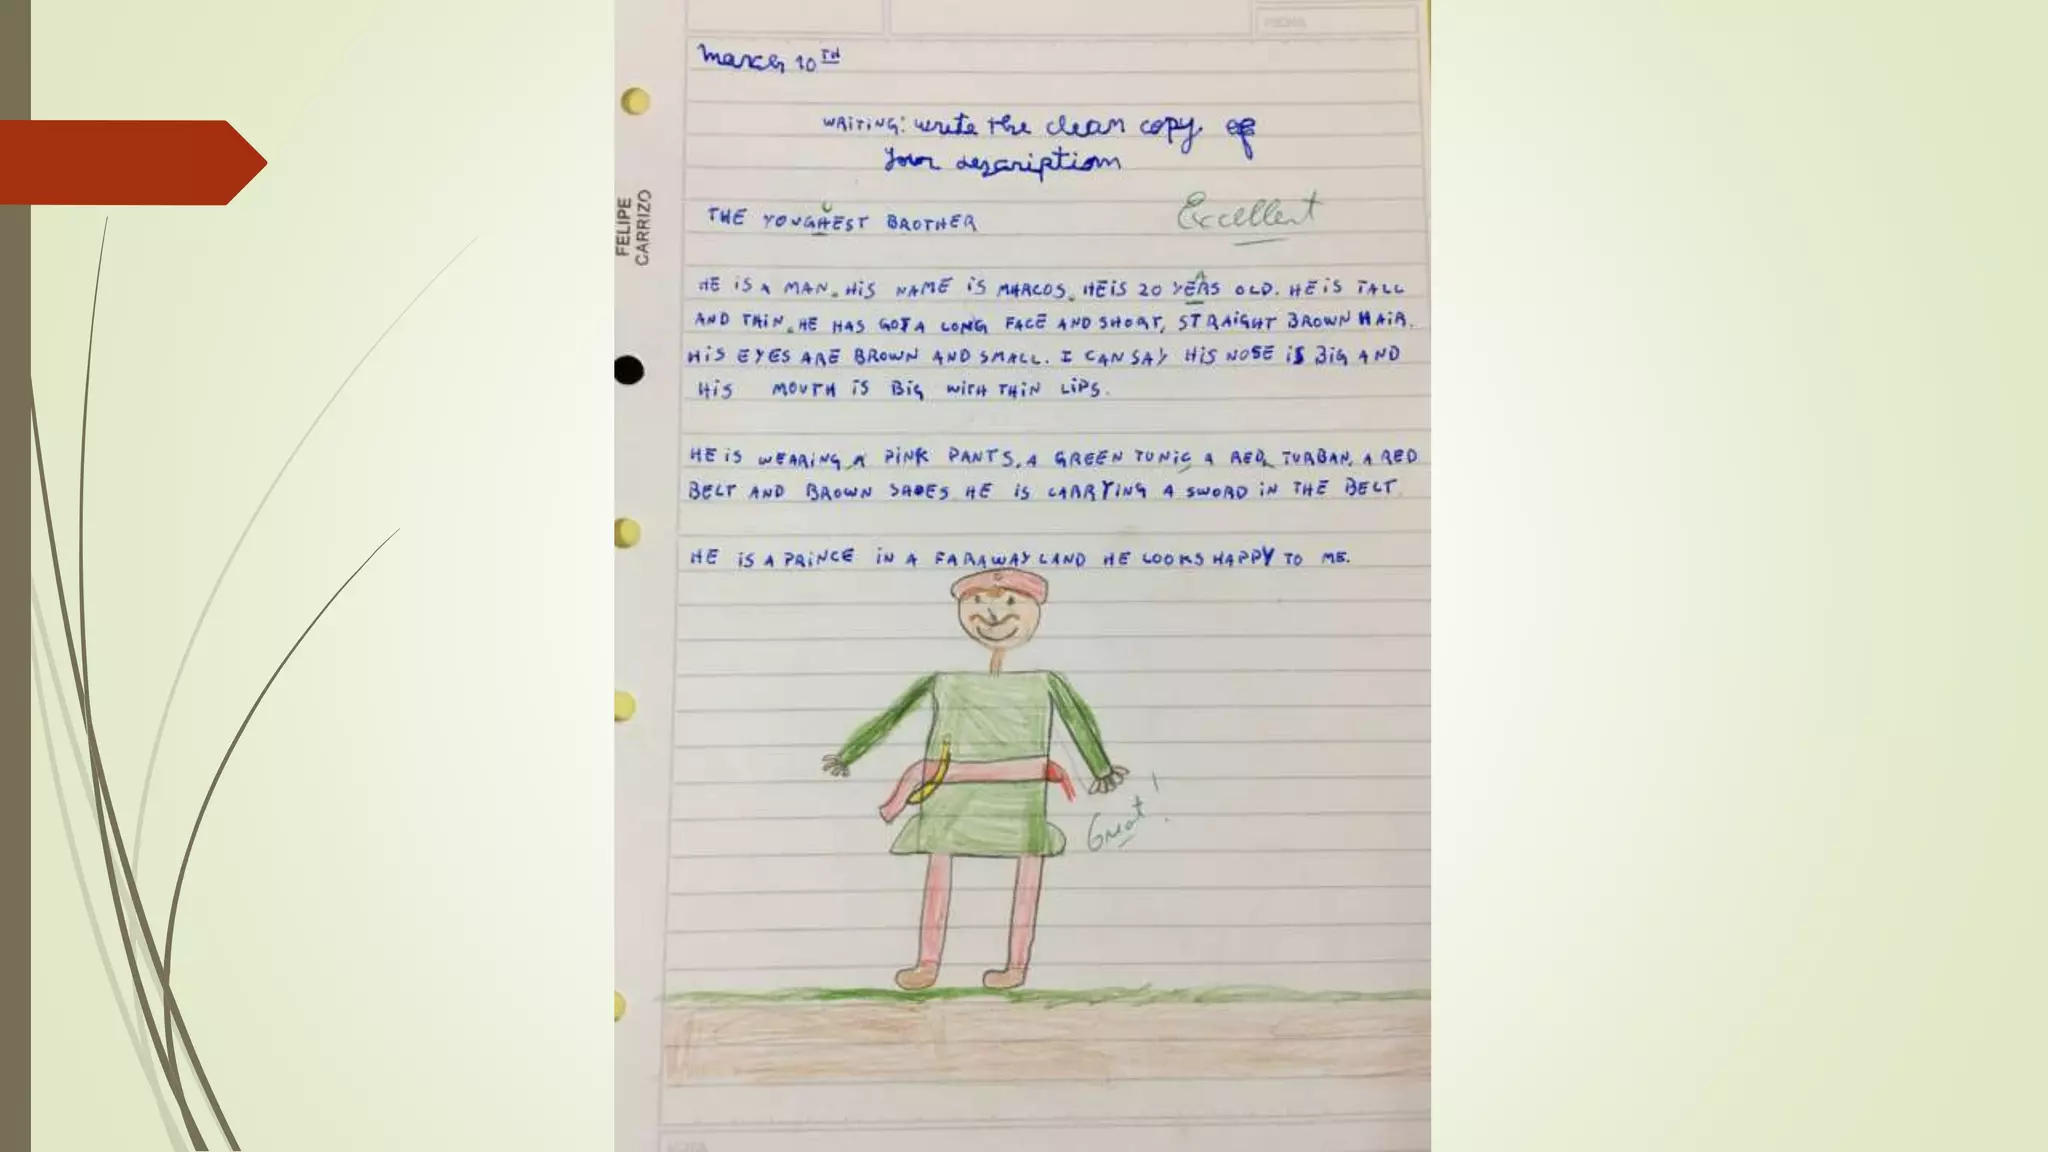 FECHA
March 10TH
WRITING: write the clean copy of
your description
FELIPE
CARRIZO
THE YOUGHEST BROTHER
Excellent
HE IS A MAN. HIS NAME IS MARCOS. HE IS 20 YEARS OLD. HE IS TALL
AND THIN. HE HAS GOT A LONG FACE AND SHORT, STRAIGHT BROWN HAIR.
HIS EYES ARE BROWN AND SMALL. I CAN SAY HIS NOSE IS BIG AND
HIS MOUTH IS BIG WITH THIN LIPS.
HE IS WEARING A PINK PANTS, A GREEN TUNIC, A RED TURBAN, A RED
BELT AND BROWN SHOES HE IS CARRYING A SWORD IN THE BELT.
HE IS A PRINCE IN A FARAWAY LAND HE LOOKS HAPPY TO ME.
Great!
NOTA